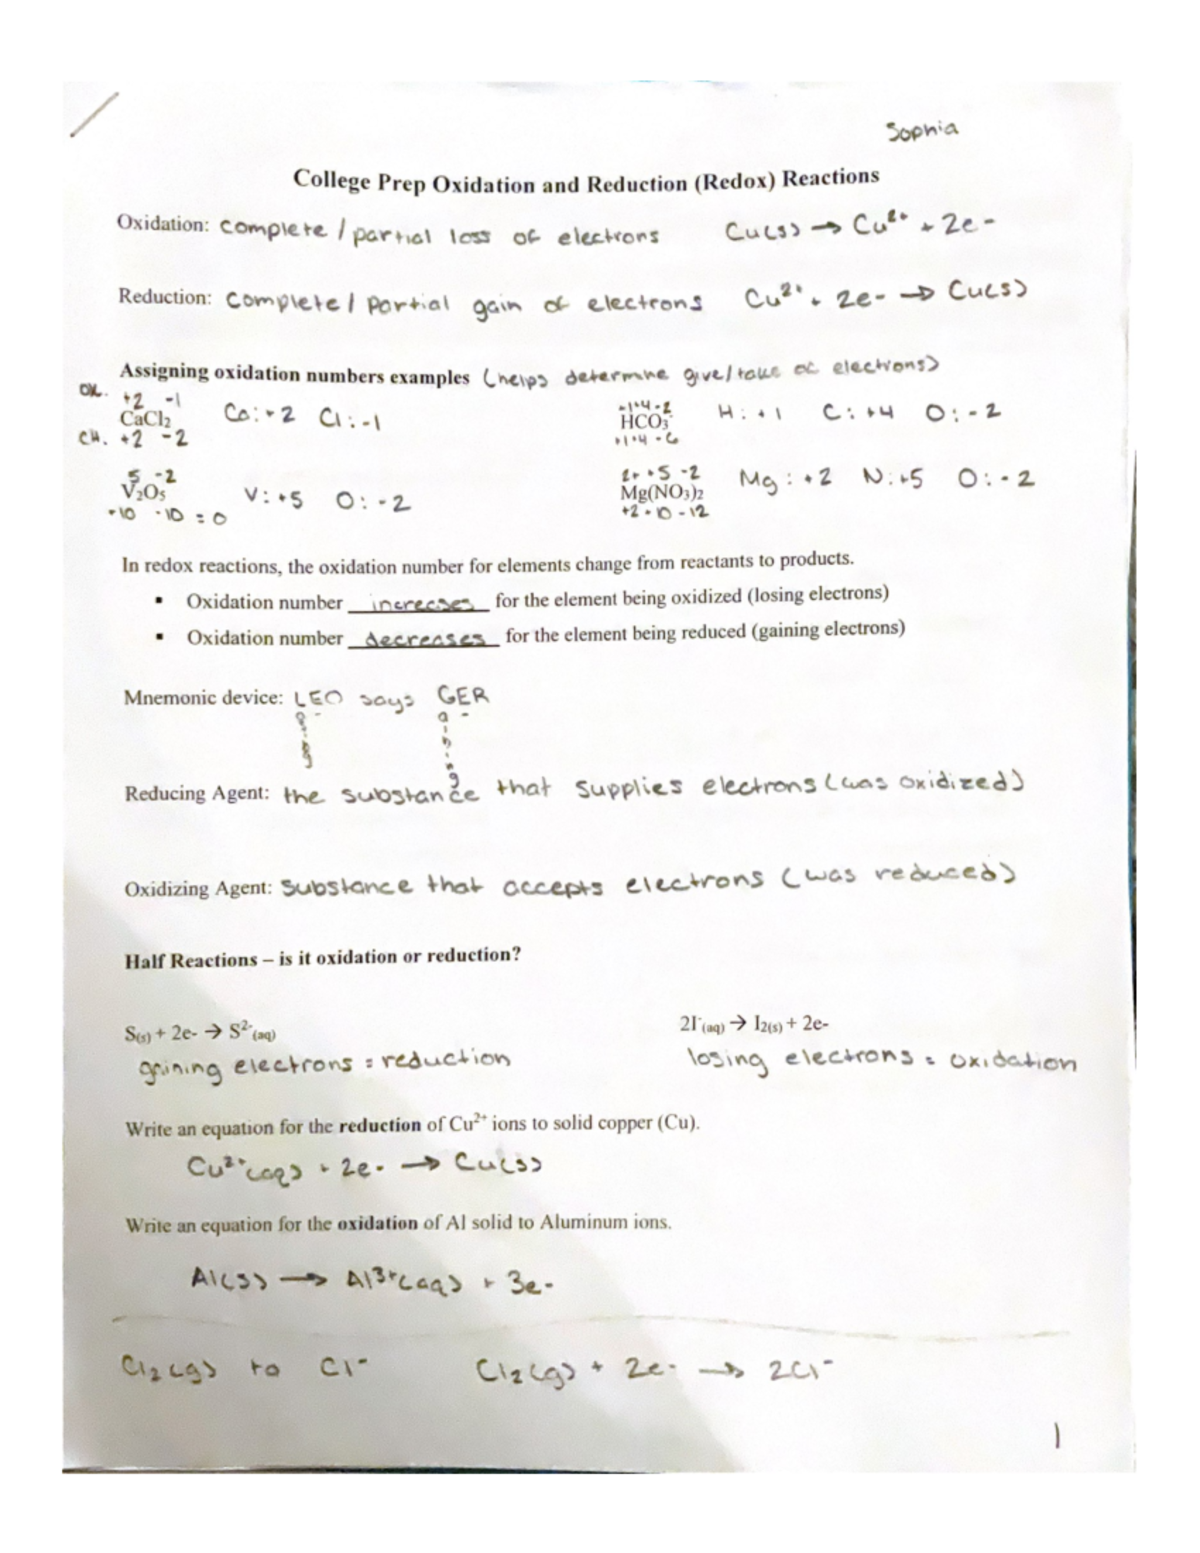 Sophia
College Prep Oxidation and Reduction (Redox) Reactions
Oxidation: complete / partial loss of electrons Cu(s) → Cu²⁺ + 2e-
Reduction: complete / partial gain of electrons Cu²⁺ + 2e- → Cu(s)
Assigning oxidation numbers examples (helps determine give/take of electrons)
ox. +2 -1 +1+4-2
CaCl₂ Ca: +2 Cl: -1 HCO₃⁻ H: +1 C: +4 O: -2
CH. +2 -2 +1+4-6
5 -2 2+ +5 -2
V₂O₅ V: +5 O: -2 Mg(NO₃)₂ Mg: +2 N: +5 O: -2
+10 -10 = 0 +2+10-12
In redox reactions, the oxidation number for elements change from reactants to products.
▪ Oxidation number increases for the element being oxidized (losing electrons)
▪ Oxidation number decreases for the element being reduced (gaining electrons)
Mnemonic device: LEO says GER
Reducing Agent: the substance that supplies electrons (was oxidized)
Oxidizing Agent: substance that accepts electrons (was reduced)
Half Reactions – is it oxidation or reduction?
S(s) + 2e- → S²⁻(aq) 2I⁻(aq) → I₂(s) + 2e-
gaining electrons = reduction losing electrons = oxidation
Write an equation for the reduction of Cu²⁺ ions to solid copper (Cu).
Cu²⁺(aq) + 2e- → Cu(s)
Write an equation for the oxidation of Al solid to Aluminum ions.
Al(s) → Al³⁺(aq) + 3e-
Cl₂(g) to Cl⁻ Cl₂(g) + 2e- → 2Cl⁻
1